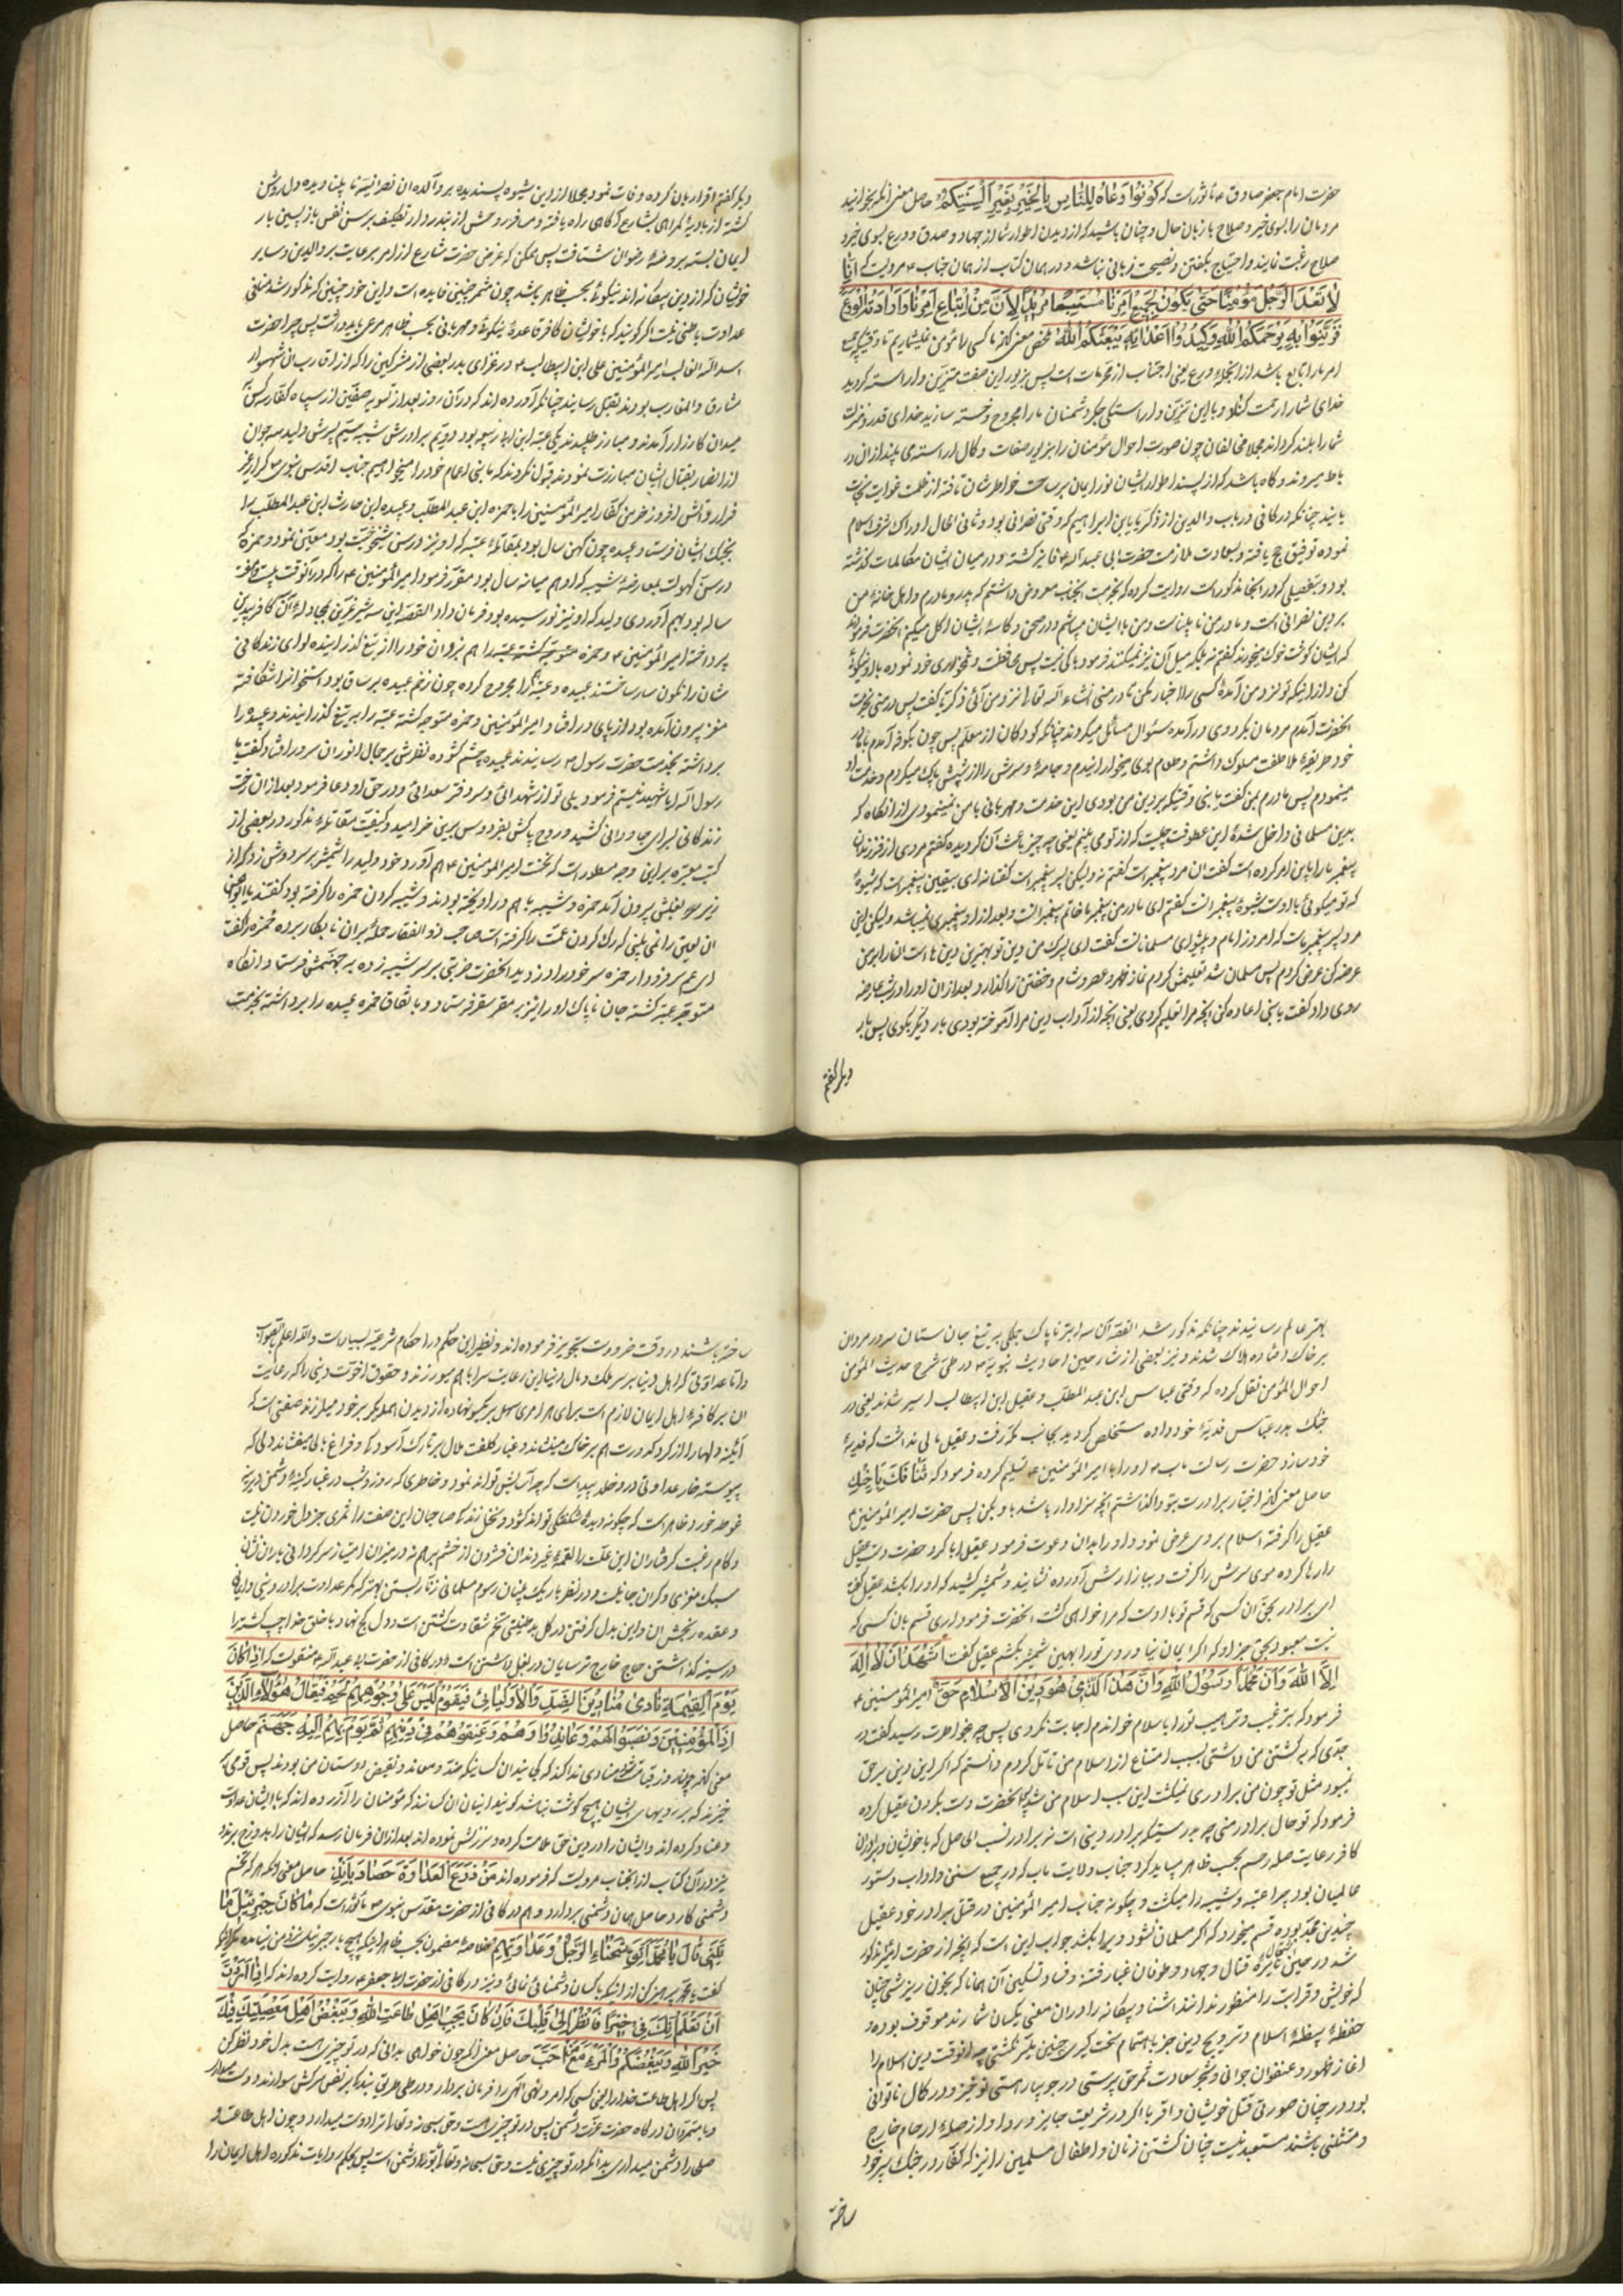 حضرت امام جعفر صادق ع مأثور است که کونوا دعاة للناس بالخیر بغیر السنتکم حاصل معنی آنکه بخوانید
مردمان را بسوی خیر و صلاح با زبان حال و چنان باشید که از دیدن اطوار شما از جهاد و صدق و ورع بسوی خیر و
صلاح رغبت نمایند و احتیاج بگفتن و نصیحت زبانی نباشد و در همان کتاب از همان جناب ع مرویست که انا
لا نعد الرجل مؤمنا حتی یکون لجمیع امرنا متبعا مریدا الا و ان من اتباع امرنا و ارادته الورع
فتزینوا به یرحمکم الله وکیدوا اعدائنا به ینعشکم الله ملخص معنی آنکه ما کسی را مؤمن نمیشماریم تا وقتیکه جمیع
امر ما را تابع باشد از انجمله ورع یعنی اجتناب از محرمات است پس بزیور این صفت متزین و آراسته گردید
خدای شما را رحمت کناد و با این تزین و آراستگی جگر دشمنان ما را مجروح و خسته سازید خدای قدر و منزلت
شما را بلند گرداند مجملا مخالفان چون صورت احوال مؤمنان را بزیور صفات و کمال آراسته می بینند از آن در
باط میروند و گاه باشد که از پسند اطوار ایشان نور ایمان بر ساحت خواطرشان تافته از ظلمت غوایت نجات
یابند چنانکه در کافی در باب والدین از زکریا بن ابراهیم که وقتی نصرانی بود و ثانی الحال ادراک شرف اسلام
نموده توفیق حج یافته و بسعادت ملازمت حضرت ابی عبد الله ع فایز گشته و در میان ایشان مکالمات گذشته
بود و بتفصیلی که در انجا مذکور است روایت کرده که بخدمت انجناب معروض داشتم که پدر و مادرم و اهل خانهٔ من
بر دین نصرانی است و مادر من نابیناست و من با ایشان میباشم و در صحن و کاسهٔ ایشان اکل میکنم انحضرت فرمودند
که ایشان گوشت خوک میخورند گفتم نه بلکه میل آن نیز نمیکنند فرمود باکی نیست پس محافظت و غمخواری مادر خود نموده با او نیکوئی
کن و از اینکه تو نزد من آمدهٔ کسی را اخبار مکن تا در منی انشاء الله تعالی نزد من آئی زکریا گفت پس در منی بخدمت
انحضرت آمدم مردمان بگرد وی در آمده سئوال مسائل میکردند چنانکه کودکان از معلم پس چون بکوفه آمدم با مادر
خود طریقهٔ ملاطفت مسلوک داشتم و طعام بوی میخورانیدم و جامه و سرش را از شپش پاک میکردم و خدمت او
مینمودم پس مادرم بمن گفت یا بنی وقتیکه بر دین من بودی این خدمت و مهربانی با من نمینمودی از انگاه که
بدین مسلمانی داخل شدهٔ این عطوفت چیست که از تو می بینم یعنی چه چیز باعث آن گردیده گفتم مردی از فرزندان
پیغمبر ما را باین امر کرده است گفت آن مرد پیغمبر است گفتم نه ولیکن پسر پیغمبر است گفتا نه ای پسر یقین پیغمبر است که شیوهٔ
که تو میگوئی با او ست شیوهٔ پیغمبرانست گفتم ای مادر من پیغمبر ما خاتم پیغمبرانست و بعد از او پیغمبری نمیباشد ولیکن این
مرد پسر پیغمبر ماست که امروز امام و پیشوای مسلمانانست گفت ای پسرک من دین تو بهترین دین ها است انرا بر من
عرضه کن عرض کردم پس مسلمان شد تعلیمش کردم نماز ظهر و عصر و شام و خفتن را گذارد و بعد از ان او را در شب عارضه
روی داد گفت یا بنی اعاده کن انچه مرا تعلیم کردی یعنی انچه از آداب دین مرا آموخته بودی بار دیگر بگوی پس بار
دیگر گفتم
دیگر گفتم اقرار بان کرده وفات نمود مجملا از این شیوه پسندیده بر و آئدهٔ آن نصرانیهٔ نابینا دیده دل روشن
گشته از بادیهٔ گمراهی بشارع آگاهی راه یافته و مسافر روحش از بندر دار تکلیف بر سن نفس باز پسین بار
ایمان بسته بروضهٔ رضوان شتافت پس ممکن که غرض حضرت شارع از امر برعایت بر والدین و سایر
خویشان که از دین بیگانه اند نیکوئی بحسب ظاهر باشد چون مثمر چنین فایده است و این خود چنین که مذکور شد منافی
عداوت باطنی نیست اگر گویند که با خویشان کافر قاعدهٔ نیکوئی و مهربانی بحسب ظاهر مرعی باید داشت پس چرا حضرت
اسد الله الغالب امیر المؤمنین علی ابن ابیطالب ع در غزای بدر بعضی از مشرکین را که از اقارب ان شهسوار
مشارق و المغارب بودند بقتل رسانید چنانکه آورده اند که در آن روز بعد از تسویه صفین از سپاه کفار سه کس
میدان کارزار آمدند و مبارز طلبیدند یکی عتبه ابن ابی ربیعه بود دویم برادرش شیبه سیم پسرش ولید سه جوان
از انصار بقتال ایشان مبارزت نمودند قبول نکردند که ما بنی اعمام خود را میخواهیم جناب اقدس نبوی ص کرار غیر
فرار و آتش افروز خرمن کفار امیر المؤمنین را با حمزه ابن عبد المطلب و عبیده ابن حارث ابن عبد المطلب را
بجنگ ایشان فرستاد و عبیده چون کهن سال بود بمقاتلهٔ عتبه که او نیز در سن شیخوخیت بود معین نمود و حمزه که
در سن کهولت بمعارضهٔ شیبه که او هم میانه سال بود مقرر فرمود و امیر المؤمنین ع را که در آنوقت بیست و هفت
ساله بود بهم آوردی ولید که او نیز نورسیده بود فرمان داد القصه این سه شیر عرین بمجادلهٔ آن کافر بیدین
پرداخته امیر المؤمنین ع و حمزه
شان را نگون سار ساختند عبیده و عتبه یکدیگر را مجروح کرده چون زخم عبیده بر ساق بود استخوانرا شکافته
مغز بیرون آمده بود از پای در افتاد و امیر المؤمنین و حمزه متوجه گشته عتبه را بر تیغ گذرانیدند و عبیده را
برداشته بخدمت حضرت رسول ص رسانیدند عبیده چشم گشوده نظرش بر جمال انور آن سرور افتاد گفت یا
رسول الله ایا شهید نیستم فرمود بلی تو از شهدائی و سر دفتر سعدائی و در حق او دعا فرمود بعد از ان رخت
زندگانی بسرای جاودانی کشید و روح پاکش بفردوس برین خرامید و کیفیت مقاتلهٔ مذکور در بعضی از
کتب معتبره براین وجه مسطور است که نخست امیر المؤمنین ع هم آورد خود ولید را شمشیر بر سر دوش زد که از
زیر بغلش بیرون آمد حمزه و شیبه با هم در آویخته بودند و شیبه گردن حمزه را گرفته بود گفتند یا ابو الحسن
ان لعین را نمی بینی که رک گردن عمت را گرفته است صاحب ذو الفقار حمله بران نابکار برده حمزه را گفت
ای عم سر فرود آر حمزه سر خود را دزدید انحضرت ضربتی بر سر شیبه زده بجهنمش فرستاد و انگاه
متوجه عتبه گشته جان ناپاک او را نیز بمقر سقر فرستاد و باتفاق حمزه عبیده را برداشته بخدمت
بهتر عالم رسانیدند چنانکه مذکور شد القصه آن سه ابتر ناپاک جملگی بر تیغ جان ستان سرور مردان
بر خاک افتاده هلاک شدند و نیز بعضی از شارحین احادیث نبویه ص در طی شرح حدیث المؤمن
احوال المؤمن نقل کرده که وقتی عباس ابن عبد المطلب و عقیل ابن ابیطالب اسیر شدند یعنی در
جنگ بدر عباس فدیهٔ خود داده مستخلص گردید بجانب مکه رفت و عقیل مالی نداشت که فدیهٔ
خود سازد حضرت رسالت ماب ص او را با امیر المؤمنین ع تسلیم کرده فرمود که شأنک باخیک
حاصل معنی آنکه اختیار برادرت بتو واگذاشتم انچه سزاوار باشد باو بکن پس حضرت امیر المؤمنین ع
عقیل را گرفته اسلام بر وی عرض نمود و او را بدان دعوت فرمود عقیل ابا کرد حضرت دست عقیل
را رها کرده موی سرش را گرفت و ببازارش آورده نشانید و شمشیر کشید که او را بکشد عقیل گفت
ای برادر بحق ان کسی که قسم تو باوست که مرا خواهی کشت انحضرت فرمود اری قسم بان کسی که
نیست معبود بحق جز او که اگر ایمان نیاوردی تو را بهمین شمشیر بکشم عقیل گفت اشهد ان لا اله
الا الله و ان محمدا رسول الله و ان هذا الذی هو دین الاسلام حق امیر المؤمنین ع
فرمود که بترغیب و ترهیب تو را باسلام خواندم اجابت نکردی پس چه بخاطرت رسید گفت در
جدی که به کشتن من داشتی بسبب امتناع از اسلام من تامل کردم دانستم که اگر این دین بر حق
نمیبود مثل تو چون من برادری نمیکشت این سبب اسلام من شد پس انحضرت دست بگردن عقیل کرده
فرمود که تو حال برادر منی چه بدرستیکه برادر دینی است نه برادر نسب الحاصل که با خویشان و برادران
کافر رعایت صله رحم بحسب ظاهر میباید کرد جناب ولایت ماب که در جمیع سنن و اداب دستور
عالمیان بود چرا عتبه و شیبه را میکشت و چگونه جناب امیر المؤمنین در قتل برادر خود عقیل
چندین مجد بوده قسم میخورد که اگر مسلمان نشود ویرا بکشد جواب این است که انچه از حضرت امیر مذکور
شد در حین نایرهٔ قتال و جهاد و طوفان غبار فتنه و فساد و تسکین آن همانا که بجون ریزشی چنان
که خویش و قرابت را منظور ندارند اشنا و بیگانه را در ان معنی یکسان شمارند موقوف بوده و
حفظهٔ بیضهٔ اسلام و ترویج دین جز باهتمام سخت گیری چنین میسر نگشتی چه انوقت دین اسلام را
اغاز ظهور و عنفوان جوانی و شجر سعادت ثمر حق پرستی در جویبار هستی نو خیز و در کمال ناتوانی
بود در چنان صورتی قتل خویشان و اقربا اگر در شریعت جایز و روا و از صلهٔ ارحام خارج
و مستثنی باشند مستبعد نیست چنان کشتن زنان و اطفال مسلمین را نیز که کفار در جنگ سپر خود
ساخته
ساخته باشند در وقت ضرورت تجویز فرموده اند و نظیر این حکم در احکام شرعیه بسیار است والله اعلم بالصواب
و اما عداوتی که اهل دنیا بر سر ملک و مال دنیا این رعایت سرا با هم میورزند و حقوق اخوت دینی را که رعایت
ان بر کافهٔ اهل ایمان لازم است برای هر امری سهل بر یکسو نهاده از دیدن همدیگر بر خود میلرزند صفتی است که
آئینه دلها را از گرد کدورت هم بر خاک مینشاند و غبار کلفت ملال بر تارک آسودگی و فراغ بالی میفشاند دلی که
پیوسته خار عداوتی در وی خلد پیداست که چه آسایش تواند نمود و خاطری که روز و شب در غبار کینهٔ دشمن دیرینه
غوطه خورد ظاهر است که چگونه دیدهٔ شگفتگی تواند گشود و نخل زندگی صاحبان این صفت را ثمری جز دل خوردن نیست
و کام رغبت گرفتاران این علت را لقمهٔ غیر دندان فشردن از خشم بر هم نه در میزان امتیاز سرگردانی یاران نشان
سبک مغزی و گران جانیست و در نظر باریک بینان رسوم مسلمانی زنار بستن بهتر که کمر عداوت برادر دینی و ایمانی
و عقده رنجش ان و این بدل گرفتن در گل بد طینتی تخم شقاوت کشتن است و دل کج نهاد با خلق خدا چپ گشته را
در سینه گذاشتن حاج خارج ترسایان در بغل داشتن است و در کافی از حضرت ابا عبد الله ع منقولست که اذا کان
یوم القیمة نادی مناد این الصدود لاولیائی فیقوم لیس علی وجوههم لحم فیقال هؤلاء الذین
اذوا المؤمنین و نصبوا لهم و عاندوهم و عنفوهم فی دینهم ثم یؤمر بهم الی جهنم حاصل
معنی آنکه چون روز قیامت شود منادی ندا کند که کجایند ان کسانیکه ضد و معاند و نقیض دوستان من بودند پس قومی بر
خیزند که بر رویهای ایشان هیچ گوشت نباشد گویند اینان ان کسانند که مؤمنان را آزرده اند که با ایشان عداوت
و عناد کرده اند و ایشان را در دین حق ملامت کرده و سرزنش نموده اند بعد از ان فرمان رسد که ایشان را بدوزخ برند و
نیز در آن کتاب از انجناب مرویست که فرموده اند من زرع العداوة حصد ما بذر حاصل معنی آنکه هر که تخم
دشمنی کارد حاصل همان دشمنی بردارد و هم در کافی از حضرت مقدس نبوی ص مأثور است که ما کان جبرئیل ما
یأتینی قال یا محمد اتق شحناء الرجال و عداوتهم خلاصهٔ مضمون بحسب ظاهر اینکه هیچ بار جبرئیل نزد من نیامده مگر اینکه
گفت یا محمد پرهیز کن از اینکه با کسان دشمنائی نمائی و نیز در کافی از حضرت ابی جعفر ع روایت کرده اند که اذا اردت
ان تعلم ان فیک خیرا فانظر الی قلبک فان کان یحب اهل طاعت الله و یبغض اهل معصیته ففیک
خیر و الله یحبک و المرء مع من احب حاصل معنی آنکه چون خواهی بدانی که در تو چیزی هست بدل خود نظر کن
پس اگر اهل طاعت خدا را یعنی کسی که امر و نهی الهی را فرمان بردار و در طی طریق بندگی بر نفس سرکش سوارند دوست میدارد
و با متمردان درگاه حضرت عزت دشمن پس در تو چیزی هست و حق سبحانه و تعالی ترا دوست میدارد و چون اهل طاعت و
صلحا را دشمن میداری بدانکه در تو چیزی نیست و حق سبحانه و تعالی با تو دشمن است پس بحکم روایات مذکوره اهل ایمان را